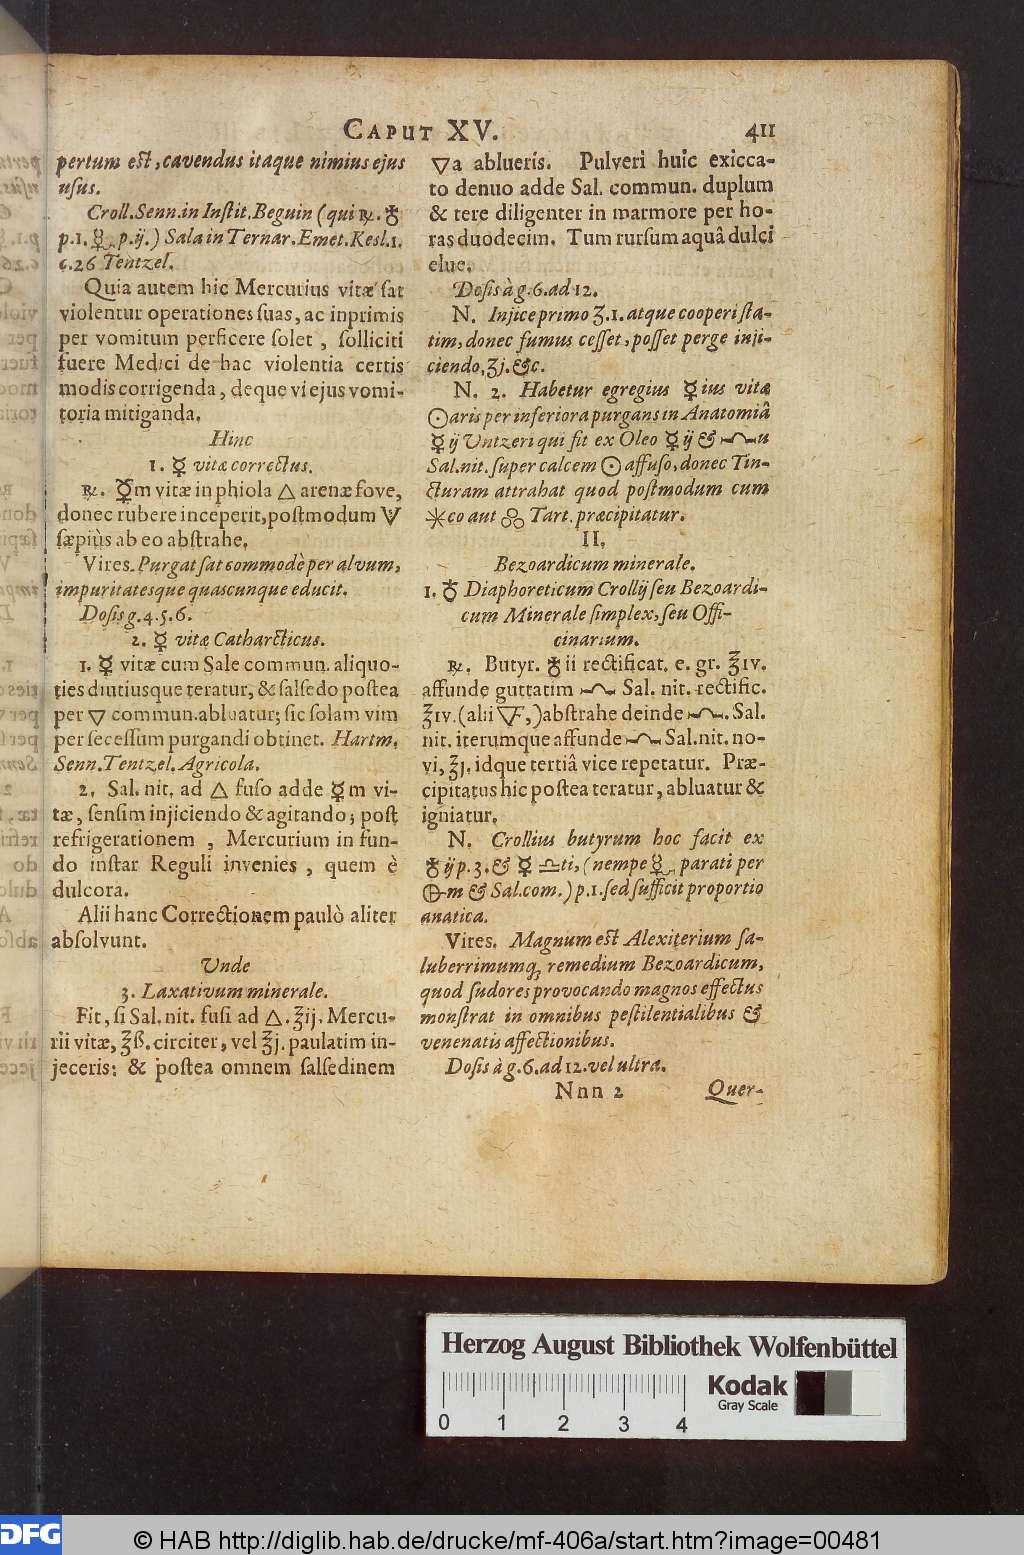 CAPUT XV. 411
pertum est, cavendus itaque nimius ejus
usus.
Croll. Senn. in Instit. Beguin (qui ℞. ♁
p. 1. p. ij.) Sala in Ternar. Emet. Kesl. 1.
c. 26 Tentzel.
Quia autem hic Mercurius vitæ sat
violentur operationes suas, ac inprimis
per vomitum perficere solet, solliciti
fuere Medici de hac violentia certis
modis corrigenda, deque vi ejus vomi-
toria mitiganda.
Hinc
1. ☿ vitæ correctus.
℞. ☿m vitæ in phiola △ arenæ fove,
donec rubere inceperit, postmodum
sæpiùs ab eo abstrahe.
Vires. Purgat sat commodè per alvum,
impuritatesque quascunque educit.
Dosis g. 4. 5. 6.
2. ☿ vitæ Catharcticus.
1. ☿ vitæ cum Sale commun. aliquo-
ties diutiusque teratur, & salsedo postea
per ▽ commun. abluatur; sic solam vim
per secessum purgandi obtinet. Hartm.
Senn. Tentzel. Agricola.
2. Sal. nit. ad △ fuso adde ☿m vi-
tæ, sensim injiciendo & agitando; post
refrigerationem, Mercurium in fun-
do instar Reguli invenies, quem è
dulcora.
Alii hanc Correctionem paulò aliter
absolvunt.
Unde
3. Laxativum minerale.
Fit, si Sal. nit. fusi ad △. ℥ij. Mercu-
rii vitæ, ℥ß. circiter, vel ℥j. paulatim in-
jeceris: & postea omnem salsedinem
▽a ablueris. Pulveri huic exicca-
to denuo adde Sal. commun. duplum
& tere diligenter in marmore per ho-
ras duodecim. Tum rursum aquâ dulci
elue.
Dosis à g. 6. ad 12.
N. Injice primo ʒ. 1. atque cooperi sta-
tim, donec fumus cesset, posset perge inji-
ciendo, ʒj. &c.
N. 2. Habetur egregius ☿ius vitæ
☉aris per inferiora purgans in Anatomiâ
☿ij Untzeri qui fit ex Oleo ☿ij & u
Sal. nit. super calcem ☉ affuso, donec Tin-
cturam attrahat quod postmodum cum
✳co aut Tart. præcipitatur.
II.
Bezoardicum minerale.
1. ♁ Diaphoreticum Crollij seu Bezoardi-
cum Minerale simplex, seu Offi-
cinarium.
℞. Butyr. ♁ii rectificat. e. gr. ℥iv.
affunde guttatim Sal. nit. rectific.
℥iv. (alii ,) abstrahe deinde . Sal.
nit. iterumque affunde Sal. nit. no-
vi, ℥j. idque tertiâ vice repetatur. Præ-
cipitatus hic postea teratur, abluatur &
igniatur.
N. Crollius butyrum hoc facit ex
♁ij p. 3. & ☿ ♎ti, (nempe parati per
m & Sal. com.) p. 1. sed sufficit proportio
anatica.
Vires. Magnum est Alexiterium sa-
luberrimumq; remedium Bezoardicum,
quod sudores provocando magnos effectus
monstrat in omnibus pestilentialibus &
venenatis affectionibus.
Dosis à g. 6. ad 12. vel ultra.
Nnn 2 Quer-
Herzog August Bibliothek Wolfenbüttel
Kodak
Gray Scale
0 1 2 3 4
DFG
© HAB http://diglib.hab.de/drucke/mf-406a/start.htm?image=00481